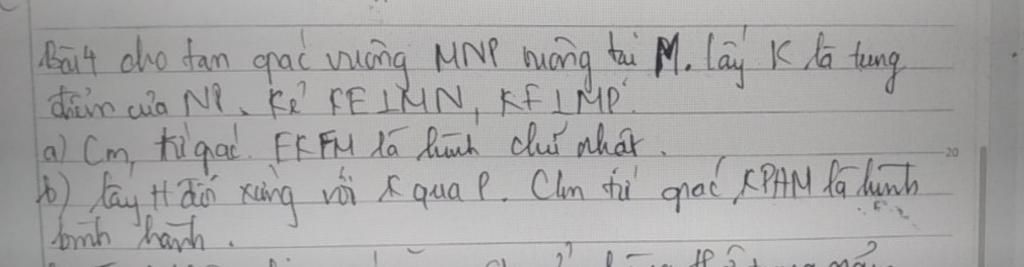 Bài 4 cho tam giác vuông MNP vuông tại M. lấy K là trung
điểm của NP. Kẻ KE⊥MN, KF⊥MP.
a) Cm, tứ giác EKFM là hình chữ nhật.
b) lấy H đối xứng với K qua P. Cm tứ giác KPHM là hình
bình hành.